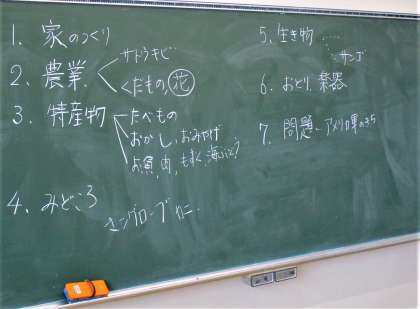 1. 家のつくり
2. 農業
サトウキビ
くだもの 花
3. 特産物
たべもの
おかし、おみやげ
お魚, 肉, もずく, 海ぶどう
4. みどころ
マングローブ カニ
5. 生き物 ....
サンゴ
6. おどり, 楽器
7. 問題 - アメリカ軍